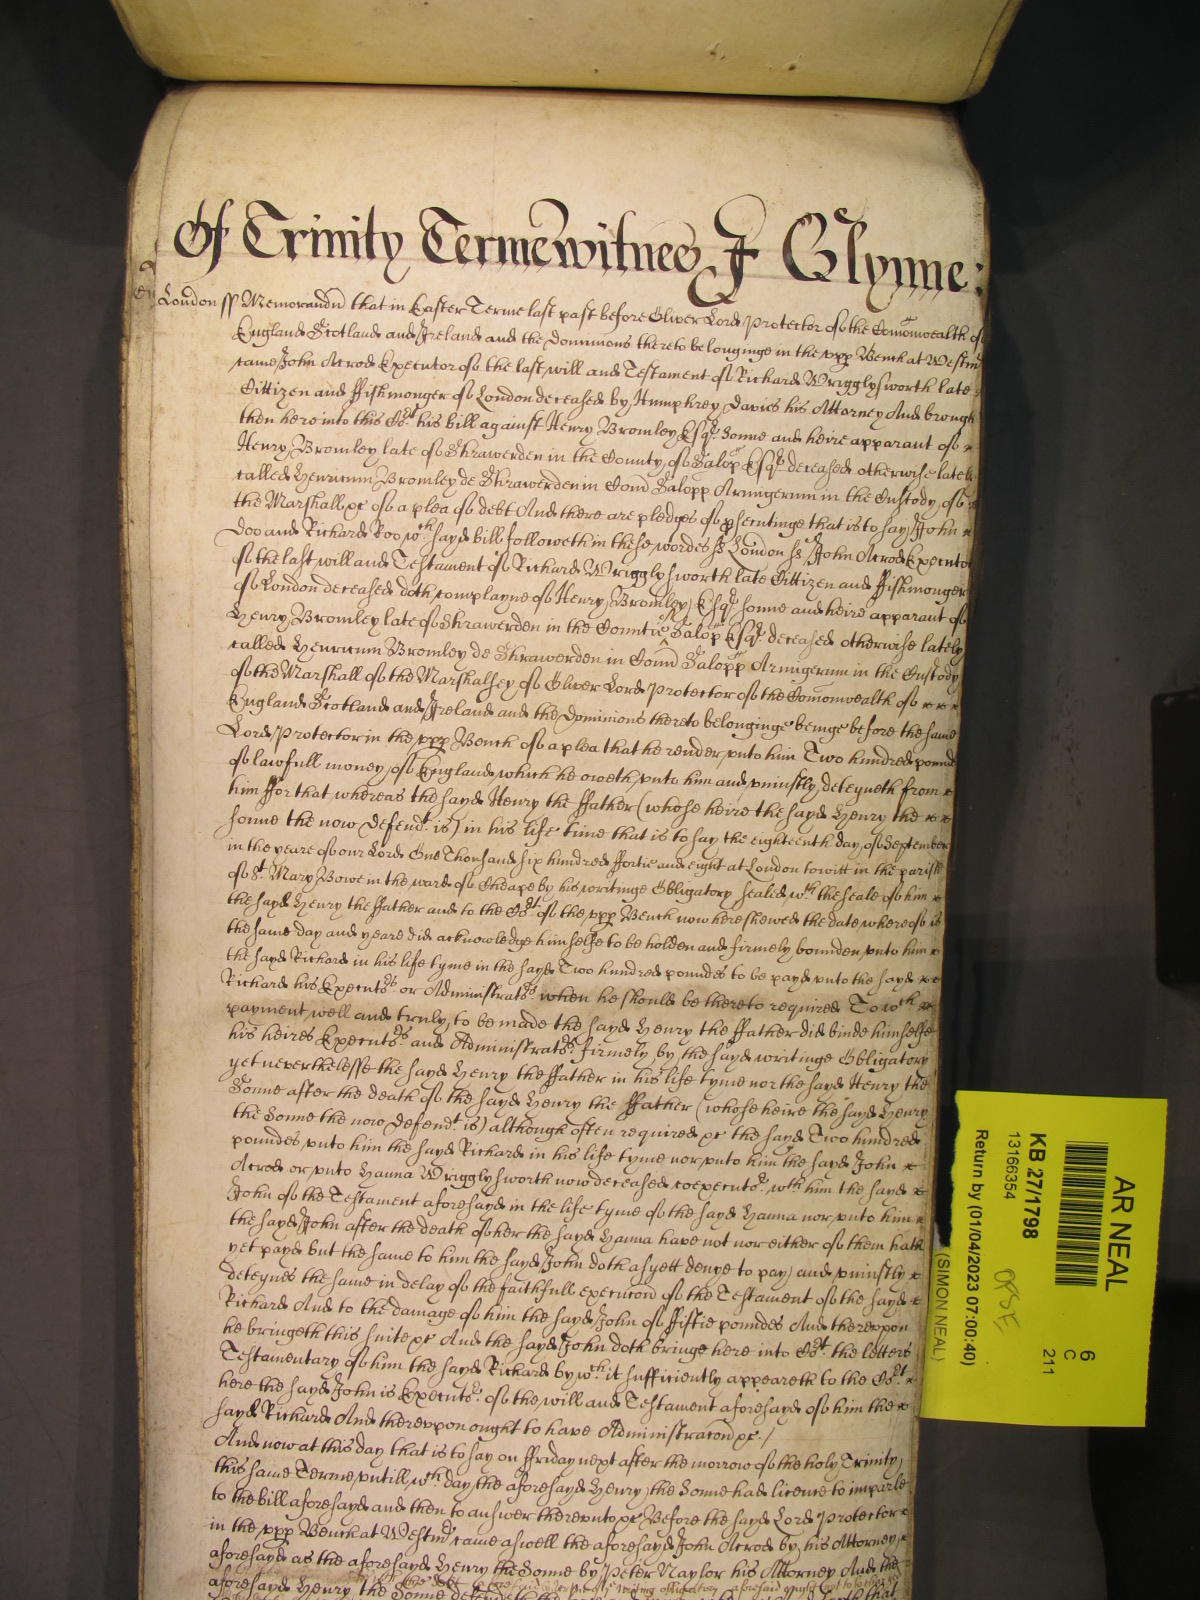 Of Trinity Terme witnes J Glynne:
London ss Memorandu that in Easter Terme last past before Oliver Lord Protector of the Comonwealth of
England Scotland and Ireland and the Dominions thereto belonginge in the upp Bench at Westmr
came John Acrod Executor of the last will and Testament of Richard Wrigglysworth late
Cittizen and ffishmonger of London deceased by Humphrey Davies his Attorney And brought
then here into this Cort his bill against Henry Bromley Esqr. Sonne and heire apparant of
Henry Bromley late of Shrawerden in the County of Salop Esqr. deceased otherwise lately
called Henricum Bromley de Shrawerden in Com Salopp Armigerum in the Custody of
the Marshall &c of a plea of debt And there are pledges of psecutinge that is to say John
Doo and Richard Roo wch sayd bill followeth in these wordes ss London ss John Acrod Executor
of the last will and Testament of Richard Wrigglysworth late Cittizen and ffishmonger
of London deceased doth complayne of Henry Bromley Esqr sonne and heire apparant of
Henry Bromley late of Shrawerden in the Countie of Salop Esqr. deceased otherwise lately
called Henricum Bromley de Shrawerden in Com Salopp Armigerum in the Custody
of the Marshall of the Marshalsey of Oliver Lord Protector of the Comonwealth of
England Scotland and Ireland and the Dominions thereto belonginge beinge before the same
Lord Protector in the upp Bench of a plea that he render unto him Two hundred pounds
of lawfull money of England which he oweth unto him and uniustly deteyneth from
him ffor that whereas the sayd Henry the ffather (whose heire the sayd Henry the
sonne the now defendt. is) in his life time that is to say the eighteenth day of September
in the yeare of our Lord One Thousand six hundred ffortie and eight at London towitt in the parish
of St. Mary Bowe in the ward of Cheape by his writinge Obligatory sealed wth the seale of him
the sayd Henry the ffather and to the Cort of the upp Bench now here shewed the date whereof is
the same day and yeare did acknowledge himselfe to be holden and firmely bounden unto him
the sayd Richard in his life tyme in the sayd Two hundred poundes to be payd unto the sayd
Richard his Executors. or Administrators when he should be thereto required To wch
payment well and truly to be made the sayd Henry the ffather did binde himselfe
his heires Executors and Administrators. firmely by the sayd writinge Obligatory
yet neverthelesse the sayd Henry the ffather in his life tyme nor the sayd Henry the
Sonne after the death of the sayd Henry the ffather (whose heire the sayd Henry
the Sonne the now defendt is) although often required &c the sayd Two hundred
poundes unto him the sayd Richard in his life tyme nor unto him the sayd John
Acrod or unto Hanna Wrigglysworth now deceased coexecutor. wth him the sayd
John of the Testament aforesayd in the life tyme of the sayd Hanna nor unto him
the sayd John after the death of her the sayd Hanna have not nor either of them hath
yet payd but the same to him the sayd John doth as yett denye to pay and uniustly
deteynes the same in delay of the faithfull execucon of the Testament of the sayd
Richard And to the damage of him the sayd John of ffiftie poundes And thereupon
he bringeth this suite &c And the sayd John doth bringe here into Cort. the letters
Testamentary of him the sayd Richard by wch it sufficiently appeareth to the Cort
here the sayd John is Executor. of the will and Testament aforesayd of him the
sayd Richard And thereupon ought to have Administracon &c./
And now at this day that is to say on ffriday next after the morrow of the holy Trinity
this same Terme untill wch day the aforesayd Henry the Sonne had licence to imparle
to the bill aforesayd and then to answer thereunto &c Before the sayd Lord Protector
in the upp Bench at Westmr came aswell the aforesayd John Acrod by his Attorney
aforesayd as the aforesayd Henry the Sonne by Peter Naylor his Attorney And the
aforesayd Henry the Sonne
AR NEAL
KB 27/1798
13166354
Return by (01/04/2023 07:00:40)
(SIMON NEAL)
6
C
211